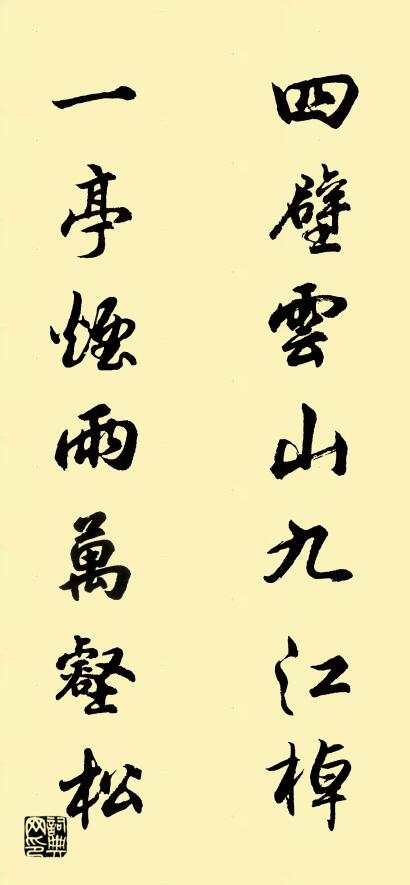 四壁雲山九江棹
一亭煙雨萬壑松
詞典网印